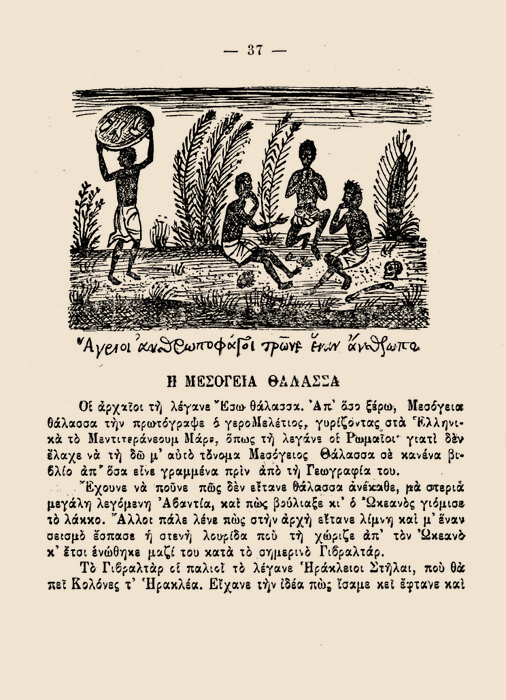 — 37 —
Ἄγριοι ἀνθρωποφάγοι τρῶνε ἕναν ἄνθρωπο
Η ΜΕΣΟΓΕΙΑ ΘΑΛΑΣΣΑ
Οἱ ἀρχαῖοι τὴ λέγανε Ἔσω θάλασσα. Ἀπ' ὅσο ξέρω, Μεσόγεια
θάλασσα τὴν πρωτόγραψε ὁ γεροΜελέτιος, γυρίζοντας στὰ Ἑλληνι-
κὰ τὸ Μεντιτεράνεουμ Μάρε, ὅπως τὴ λεγάνε οἱ Ρωμαῖοι· γιατὶ δὲν
ἔλαχε νὰ τὴ δῶ μ' αὐτὸ τὄνομα Μεσόγειος Θάλασσα σὲ κανένα βι-
βλίο ἀπ' ὅσα εἶνε γραμμένα πρὶν ἀπὸ τὴ Γεωγραφία του.
Ἔχουνε νὰ ποῦνε πῶς δὲν εἴτανε θάλασσα ἀνέκαθε, μὰ στεριὰ
μεγάλη λεγόμενη Ἀβαντία, καὶ πὼς βούλιαξε κι' ὁ Ὠκεανὸς γιόμισε
τὸ λάκκο. Ἄλλοι πάλε λένε πὼς στὴν ἀρχὴ εἴτανε λίμνη καὶ μ' ἕναν
σεισμὸ ἔσπασε ἡ στενὴ λουρίδα ποὺ τὴ χώριζε ἀπ' τὸν Ὠκεανὸ
κ' ἔτσι ἑνώθηκε μαζί του κατὰ τὸ σημερινὸ Γιβραλτάρ.
Τὸ Γιβραλτὰρ οἱ παλιοὶ τὸ λέγανε Ἡράκλειοι Στῆλαι, ποὺ θὰ
πεῖ Κολόνες τ' Ἡρακλέα. Εἴχανε τὴν ἰδέα πὼς ἴσαμε κεῖ ἔφτανε καὶ